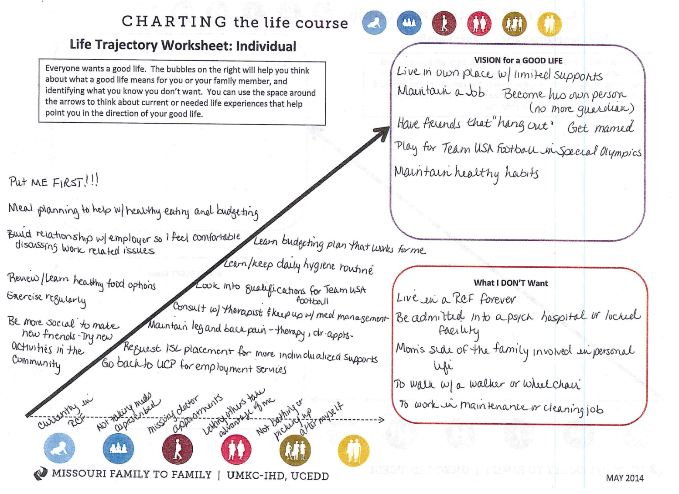 CHARTING the life course
Life Trajectory Worksheet: Individual
Everyone wants a good life. The bubbles on the right will help you think
about what a good life means for you or your family member, and
identifying what you know you don't want. You can use the space around
the arrows to think about current or needed life experiences that help
point you in the direction of your good life.
VISION for a GOOD LIFE
Live in own place w/ limited supports
Maintain a Job Become his own person
(no more guardian)
Have friends that "hang out" Get married
Play for Team USA Football in Special Olympics
Maintain healthy habits
Put ME FIRST!!!
Meal planning to help w/ healthy eating and budgeting
Build relationship w/ employer so I feel comfortable
discussing work related issues
Learn budgeting plan that works for me
Learn/keep daily hygiene routine
Review/Learn healthy food options
Look into qualifications for Team USA
football
Exercise regularly
Consult w/ therapist & keep up w/ med management
Be more social to make
new friends - Try new
activities in the
Community
Maintain leg and back pain - therapy, dr appts.
Request ISL placement for more individualized supports
Go back to UCP for employment services
What I DON'T Want
Live in a RCF forever
Be admitted into a psych hospital or locked
facility
Mom's side of the family involved in personal
life
To walk w/ a walker or wheelchair
To work in maintenance or cleaning job
Currently in
RCF
Not taking meds
as prescribed
Missing doctor
appointments
Letting others take
advantage of me
Not bathing or
picking up
after myself
MISSOURI FAMILY TO FAMILY | UMKC-IHD, UCEDD
MAY 2014